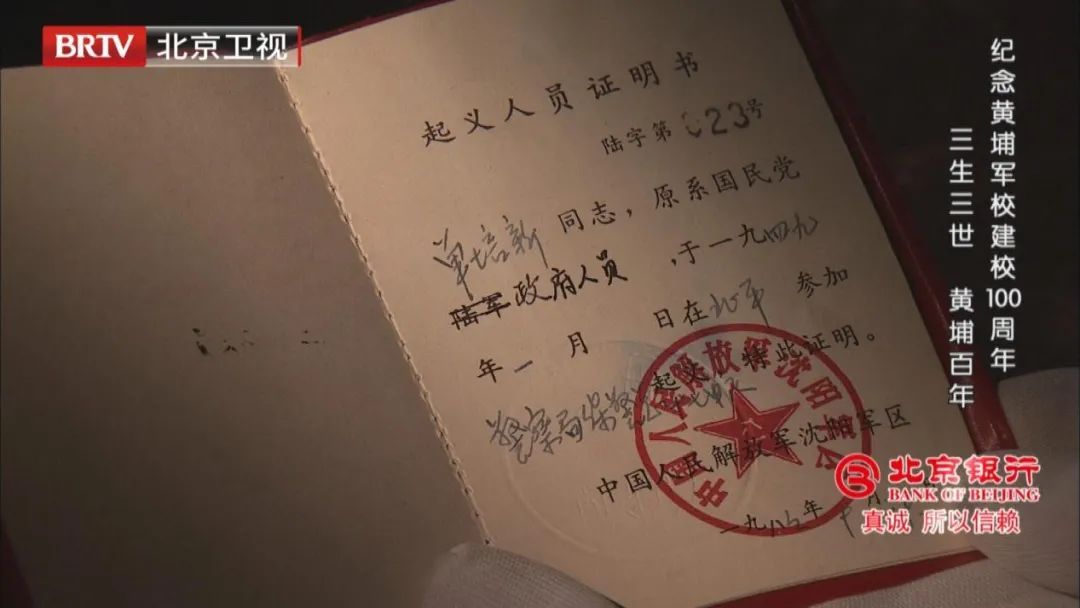 BRTV 北京卫视
纪念黄埔军校建校100周年
三生三世 黄埔百年
起义人员证明书
陆字第023号
单培新同志，原系国民党
陆军政府人员，于一九四九
年一月 日在北平参加
起义，特此证明。
警察局保警
中国人民解放军沈阳军区
一九八 年 月
北京银行
BANK OF BEIJING
真诚 所以信赖